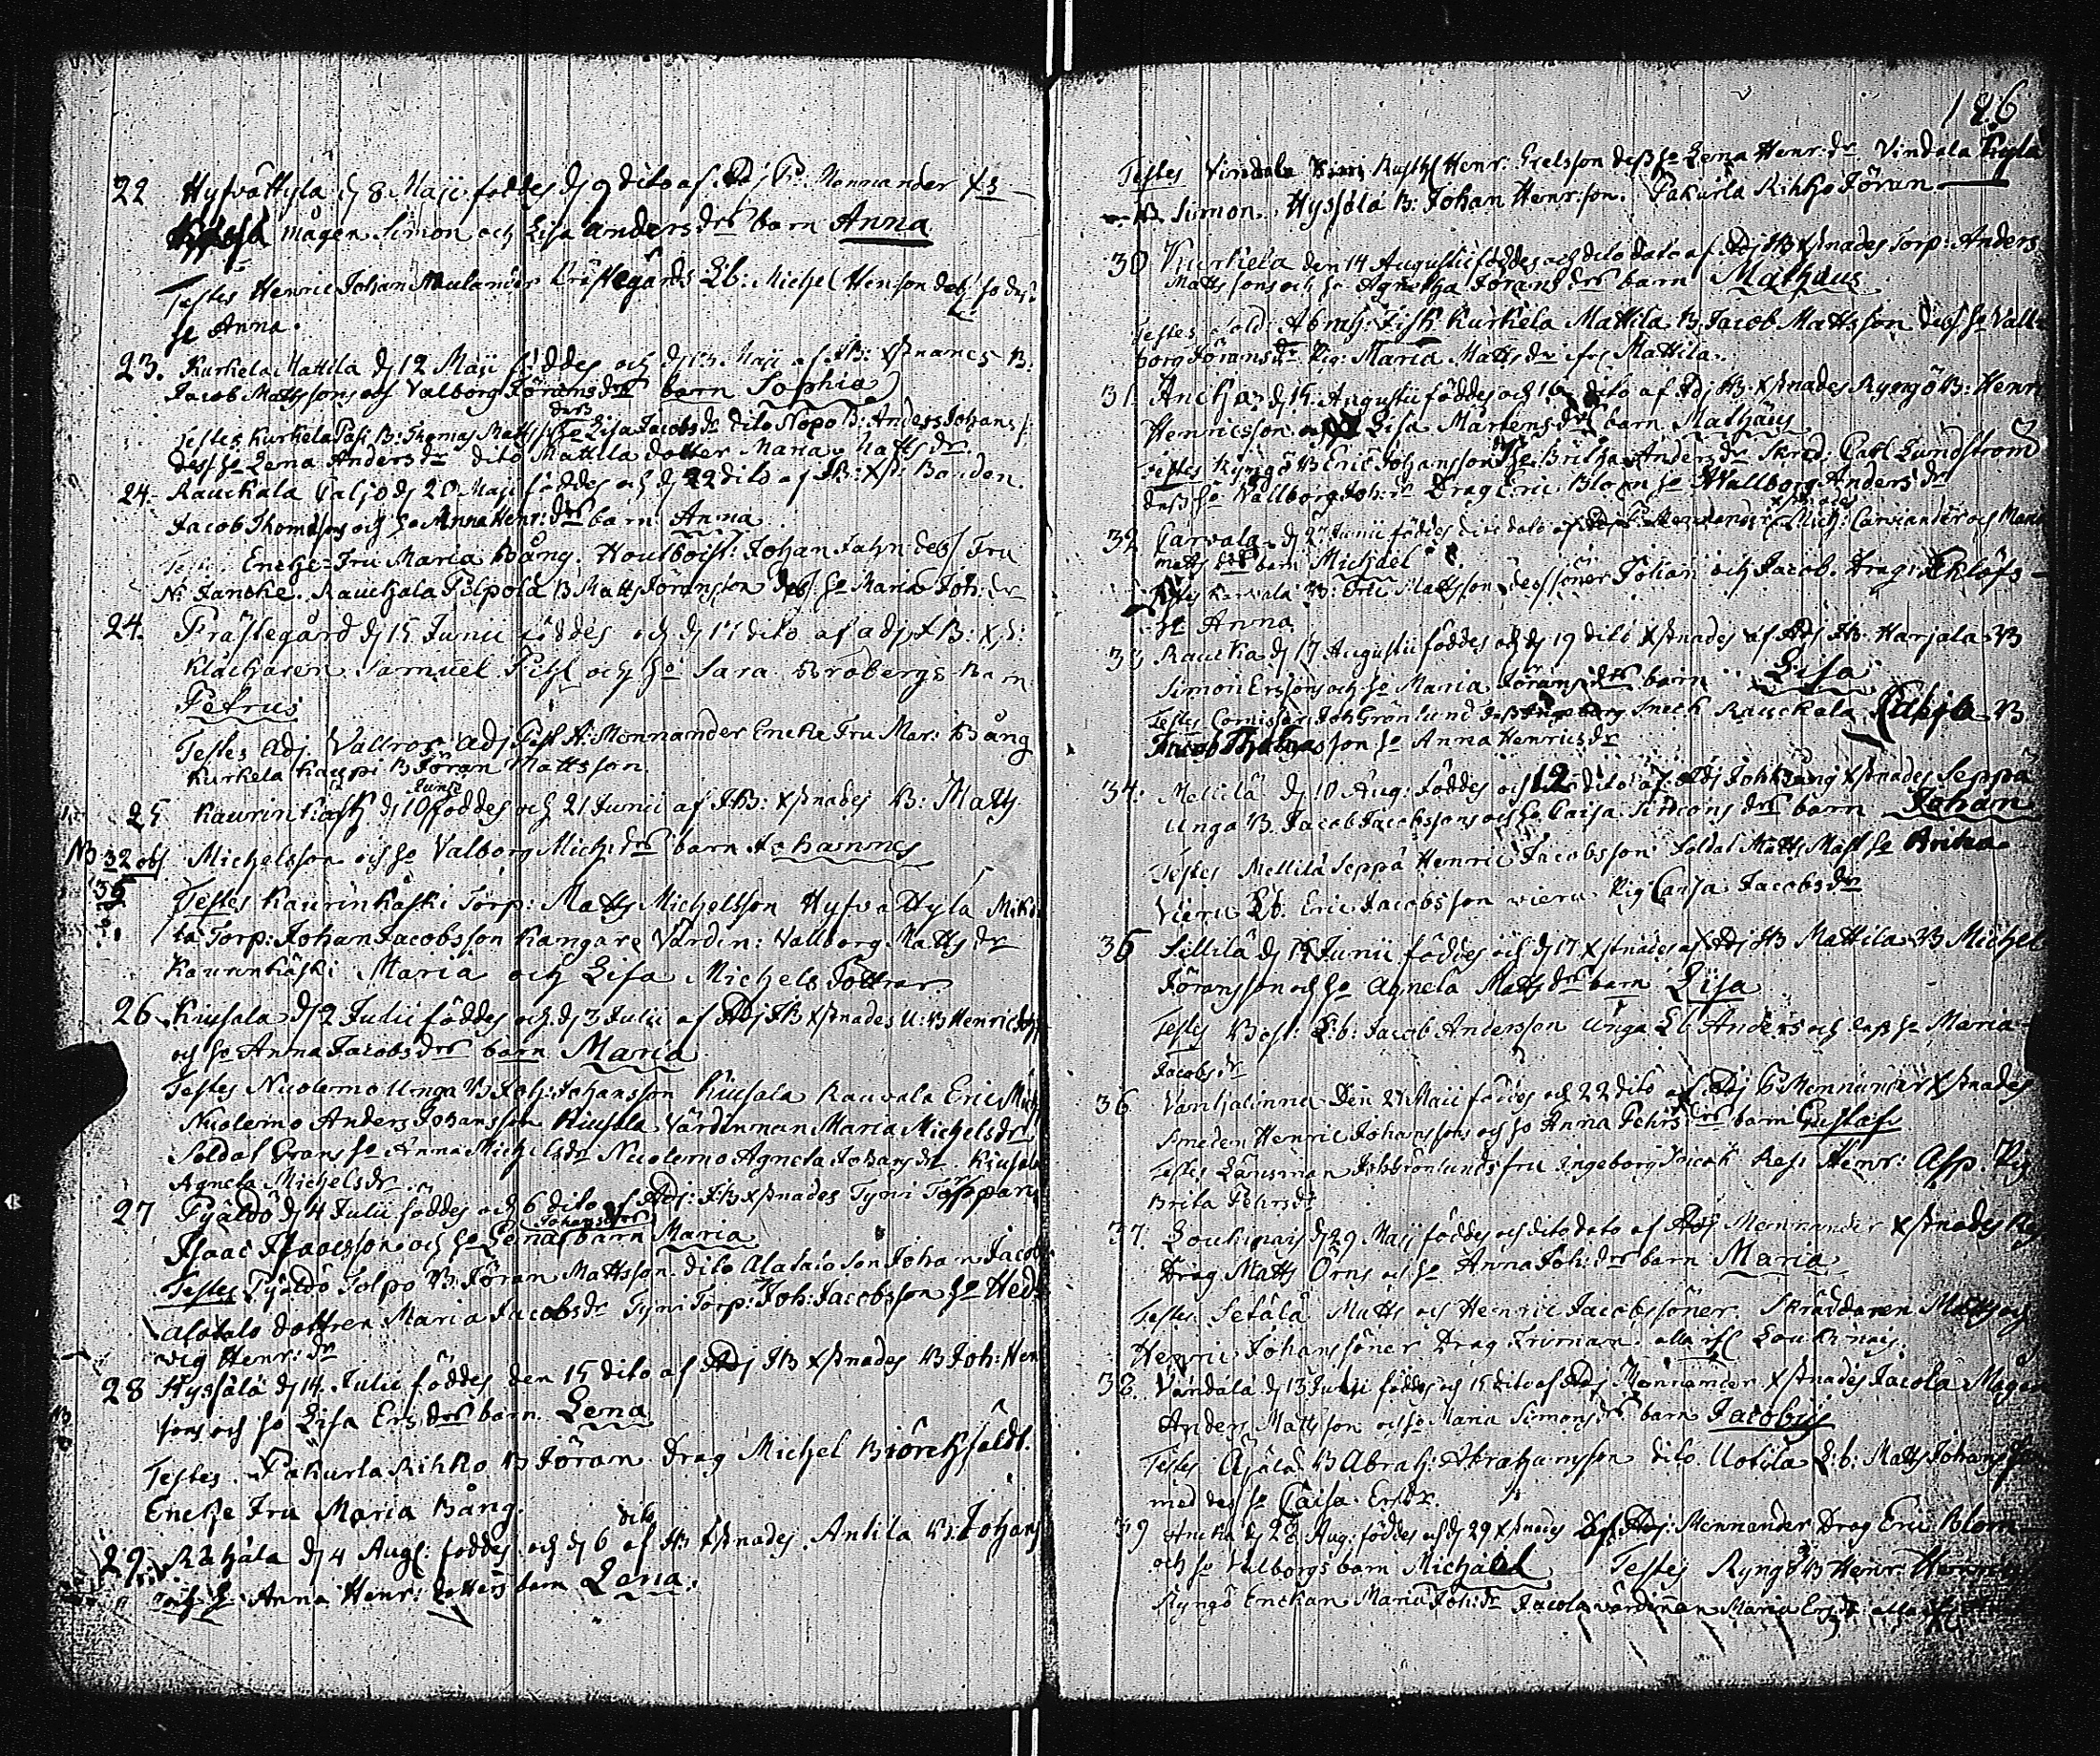 22 Hyfvättylä d 8 Maji föddes d 9 dito af Adj P: Monnander xs
mågen Simon och Lisa anders drs barn Anna
Testes Henric Johan Prästegårds Lb: Michel Hinson dess
hu Anna.
23. Kurkela Mattila d 12 Maji föddes och d 13 Maji af JB: xstnades B:
Jacob Mattssons och Valborg Jörans drs barn Sophia
Testes Kurkela Pasi B: Thomas Matts hu Lisa Jacobs dr dito Nopo B: Anders Johans
dess hu Lena Anders dr dito Mattila dotter Maria Matts dr.
24. Rauckala Caljo d 20 Maji föddes och d 22 dito af JB: xst: Bonden
Jacob Thomassons och hu Anna Henr: drs barn Anna
Encke-Fru Maria Bång. Houtboist: Johan Jahn dess Fru
N: Jancke. Rauckala Pilpola B Matts Jöransson dess hu Maria Joh: dr
24. Prästegård d 15 Junii föddes och d 17 dito af adj JB: xst:
Klåckaren Samuel Pihl och hu Sara Brobergs Barn
Petrus
Testes Adj. Vallroos Adj Past A: Monnander Encke Fru Mar: Bång
Kurkela Kauppi B Jöran Mattsson
25 Kaurinkåski d 10 Junii föddes och 21 Junii af JB: xstnades B: Matts
NB 32 obs Michelsson och hu Valborg Mich: drs barn Johannes
35
Testes Kaurinkåski Torp: Matts Michelsson Hyfvättylä
Torp: Johan Jacobsson Kangare Värdin: Vallborg Matts dr
Kaurinkåski Maria och Lisa Michels döttrar
26. Kiusala d 2 Julii föddes och d 3 Julii af Adj JB xstnades U: B Henric
och hu Anna Jacobs drs barn Maria
Testes Nuolemo Unga B Joh: Johansson Kiusala Rauvala Eric Mich
Nuolemo Anders Johansson Kiusala Värdinnan Maria Michels dr
Soldat Grans hu Anna Michels dr Nuolemo Agneta Johans dr Kiusala
Agneta Michels dr
27 Pyäldö d 4 Julii föddes och 6 dito af Adj: JB xstnades Tyni
Isaac Isaacsson och hu Lena Johans drs barn Maria
Testes Pyäldö Tolpo B Jöran Mattsson dito Alatalo son Johan Jacobs
alotalo dottren Maria Jacobs dr Tyni Torp: Joh: Jacobsson hu Hed
vig Henr: dr
28 Hyssälä d 14. Julii föddes den 15 dito af Adj JB xstnades B Joh: Hen
sons och hu Lisa Ers drs barn Lena
Testes. Pakurla Rihko B Jöran Drag Michel Biörckfeldt.
Encke Fru Maria Bång.
29. Rahjala d 4 Aug: föddes och d 6 dito af JB xstnades Antila B: Johans
och hu Anna Henr: dotters barn Lena.
126
Testes Vindala Rusth: Henr: Grelsson dess hu Lena Henr: dr Vindala Kylä
B Simon, Hyssälä B: Johan Henr:son. Pakurla Rihko Jöran
30 Kurkela den 14 Augustii föddes och dito dato af Adj JB xstnades Torp: Anders
Mattssons och hu Agnetha Jörans drs barn Mathæus
Testes Sold: Abrah: Fisk Kurkela Mattila B. Jacob Mattsson dess hu Vall
borg Jörans dr Pig: Maria Matts dr ifr: Mattila.
31 Ancka d 15 Augustii föddes och 16 dito af Adj JB xstnades Ryngö B: Henr
Henricsson och Lisa Mårtens drs barn Mathäus
Testes Ryngö B Eric Johansson hu Britha Anders dr Skräd: Carl Lundström
dess hu Vallborg Joh: dr Drag Eric Blom hu Wallborg Anders dr
32 Carvala d 27 Junii föddes dito dato af Mich: Carviander och Maria
Matts drs barn Michael
Testes Karvala B: Eric Mattsson dess söner Johan och Jacob. Drag: Eklöfs
hu Anna
33 Raucka d 17 Augustii föddes och d 19 dito xstnades af Adj JB Harjala B
Simon Erssons och hu Maria Jörans drs barn Lisa
Testes Comissar: Joh Grönlund Sneck Rauckala Caljo B
Jacob Thomasson hu Anna Henrics dr
34. Mellilä d 10 Aug: föddes och 12 dito af Adj Joh Bång xstnades Seppä
Unga B. Jacob Jacobssons och hu Caisa Simons drs barn Johan
Testes Mellilä Seppä Henric Jacobsson Soldat Matts Mast hu Britha
Vieru Lb. Eric Jacobsson vieru Pig Caisa Jacobs dr
35 Sillilä d 15 Junii föddes och d 17 xstnades af Adj JB Mattila B Michel
Jöransson och hu Agneta Matts drs barn Lisa
Testes Lb: Jacob Andersson Unga Lb Anders och dess hu Maria
Jacobs dr
36 Vanhalinna Den 21 Maii föddes och 22 dito af Adj P Monnander xstnades
Smeden Henric Johanssons och hu Anna Pehrs drs barn Gustaf
Testes Länsman Joh Grönlunds fru Ingeborg Sneck Henr: Asp. Pig
Brita Pehrs dr
37. Loukinais d 29 Maji föddes och dito dato af Adj Monnander xstnades
Drag Matts Örns och hu Anna Joh: drs barn Maria
Testes Setälä Matts och Henric Jacobssöner Skräddaren Matts och
Henric Johanssöner Drag Truman alla ifr: Loukinais.
38. Vandala d 13 Junii föddes och 15 dito af Adj Monnander xstnades Jacola Mågen
Anders Mattsson och hu Maria Simons drs barn Jacobus
Testes Äjälä B Abrah: Abrahamsson dito Uotila L: b: Matts Johans
med dess hu Caisa Ers dr.
39 Ancka d 28 Aug: föddes och d 29 xstnades af Adj: Monnander Drag Eric Blom
och hu Valborgs barn Michael Testes Ryngö B Henr: Henrics
Ryngö Enckan Maria Joh: dr Jacola värdinnan Maria Ers dr alla